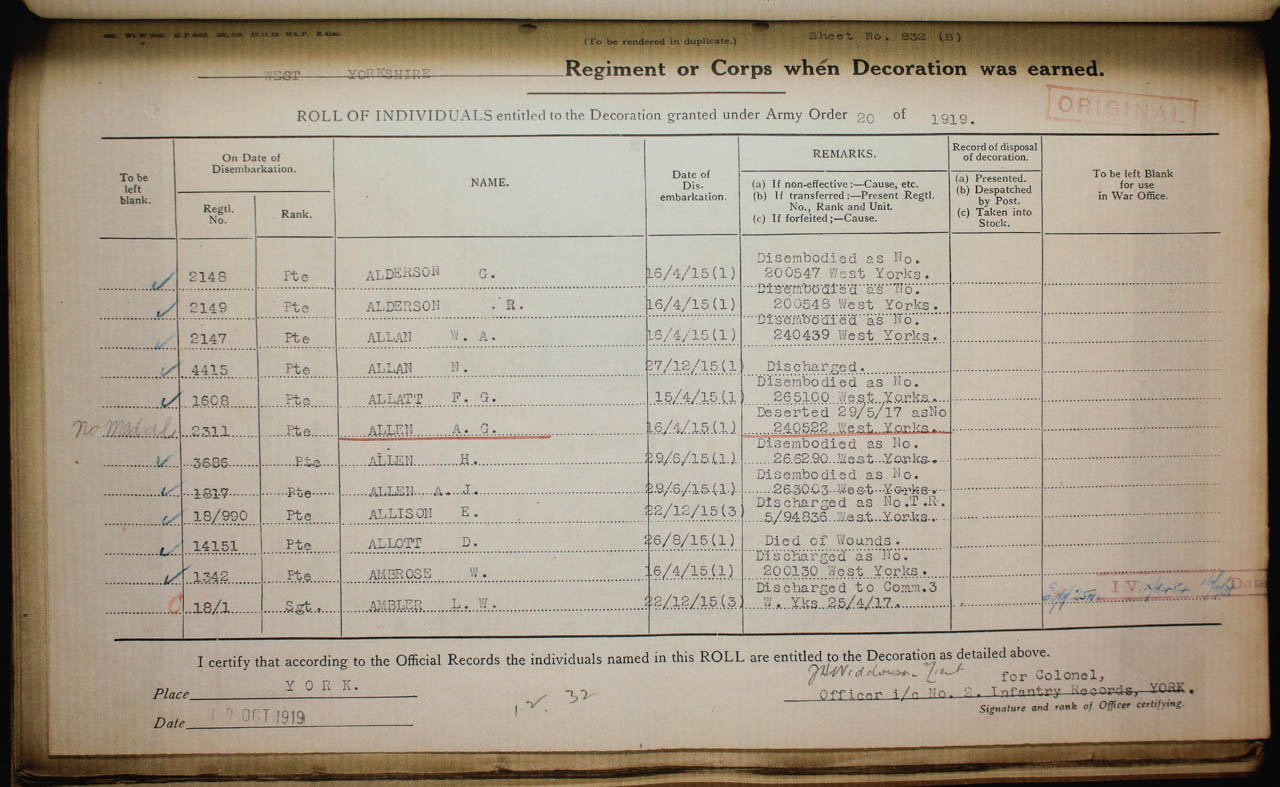 (To be rendered in duplicate.) Sheet No. 832 (B)
WEST YORKSHIRE Regiment or Corps when Decoration was earned.
ORIGINAL
ROLL OF INDIVIDUALS entitled to the Decoration granted under Army Order 20 of 1919.
To be left blank.
On Date of Disembarkation.
Regtl. No.
Rank.
NAME.
Date of Dis-embarkation.
REMARKS.
(a) If non-effective:—Cause, etc.
(b) If transferred:—Present Regtl. No., Rank and Unit.
(c) If forfeited;—Cause.
Record of disposal of decoration.
(a) Presented.
(b) Despatched by Post.
(c) Taken into Stock.
To be left Blank for use in War Office.
Disembodied as No.
2148 Pte ALDERSON G. 16/4/15(1) 200547 West Yorks.
Disembodied as No.
2149 Pte ALDERSON R. 16/4/15(1) 200548 West Yorks.
Disembodied as No.
2147 Pte ALLAN W. A. 16/4/15(1) 240439 West Yorks.
4415 Pte ALLAN N. 27/12/15(1) Discharged.
Disembodied as No.
1608 Pte ALLATT F. G. 15/4/15(1 265100 West Yorks.
Deserted 29/5/17 asNo
No Medal 2311 Pte ALLEN A. G. 16/4/15(1) 240522 West Yorks.
Disembodied as No.
3686 Pte ALLEN H. 29/6/15(1) 266290 West Yorks.
Disembodied as No.
1817 Pte ALLEN A. J. 29/6/15(1) 263003 West Yorks.
Discharged as No.T.R.
18/990 Pte ALLISON E. 22/12/15(3) 5/94836 West Yorks.
14151 Pte ALLOTT D. 26/8/15(1) Died of Wounds.
Discharged as No.
1342 Pte AMBROSE W. 16/4/15(1) 200130 West Yorks.
Discharged to Comm.3
18/1 Sgt. AMBLER L. W. 22/12/15(3) W. Yks 25/4/17. IV Date
I certify that according to the Official Records the individuals named in this ROLL are entitled to the Decoration as detailed above.
for Colonel,
Place YORK. Officer i/c No. 2. Infantry Records, YORK.
Signature and rank of Officer certifying.
Date OCT 1919
32